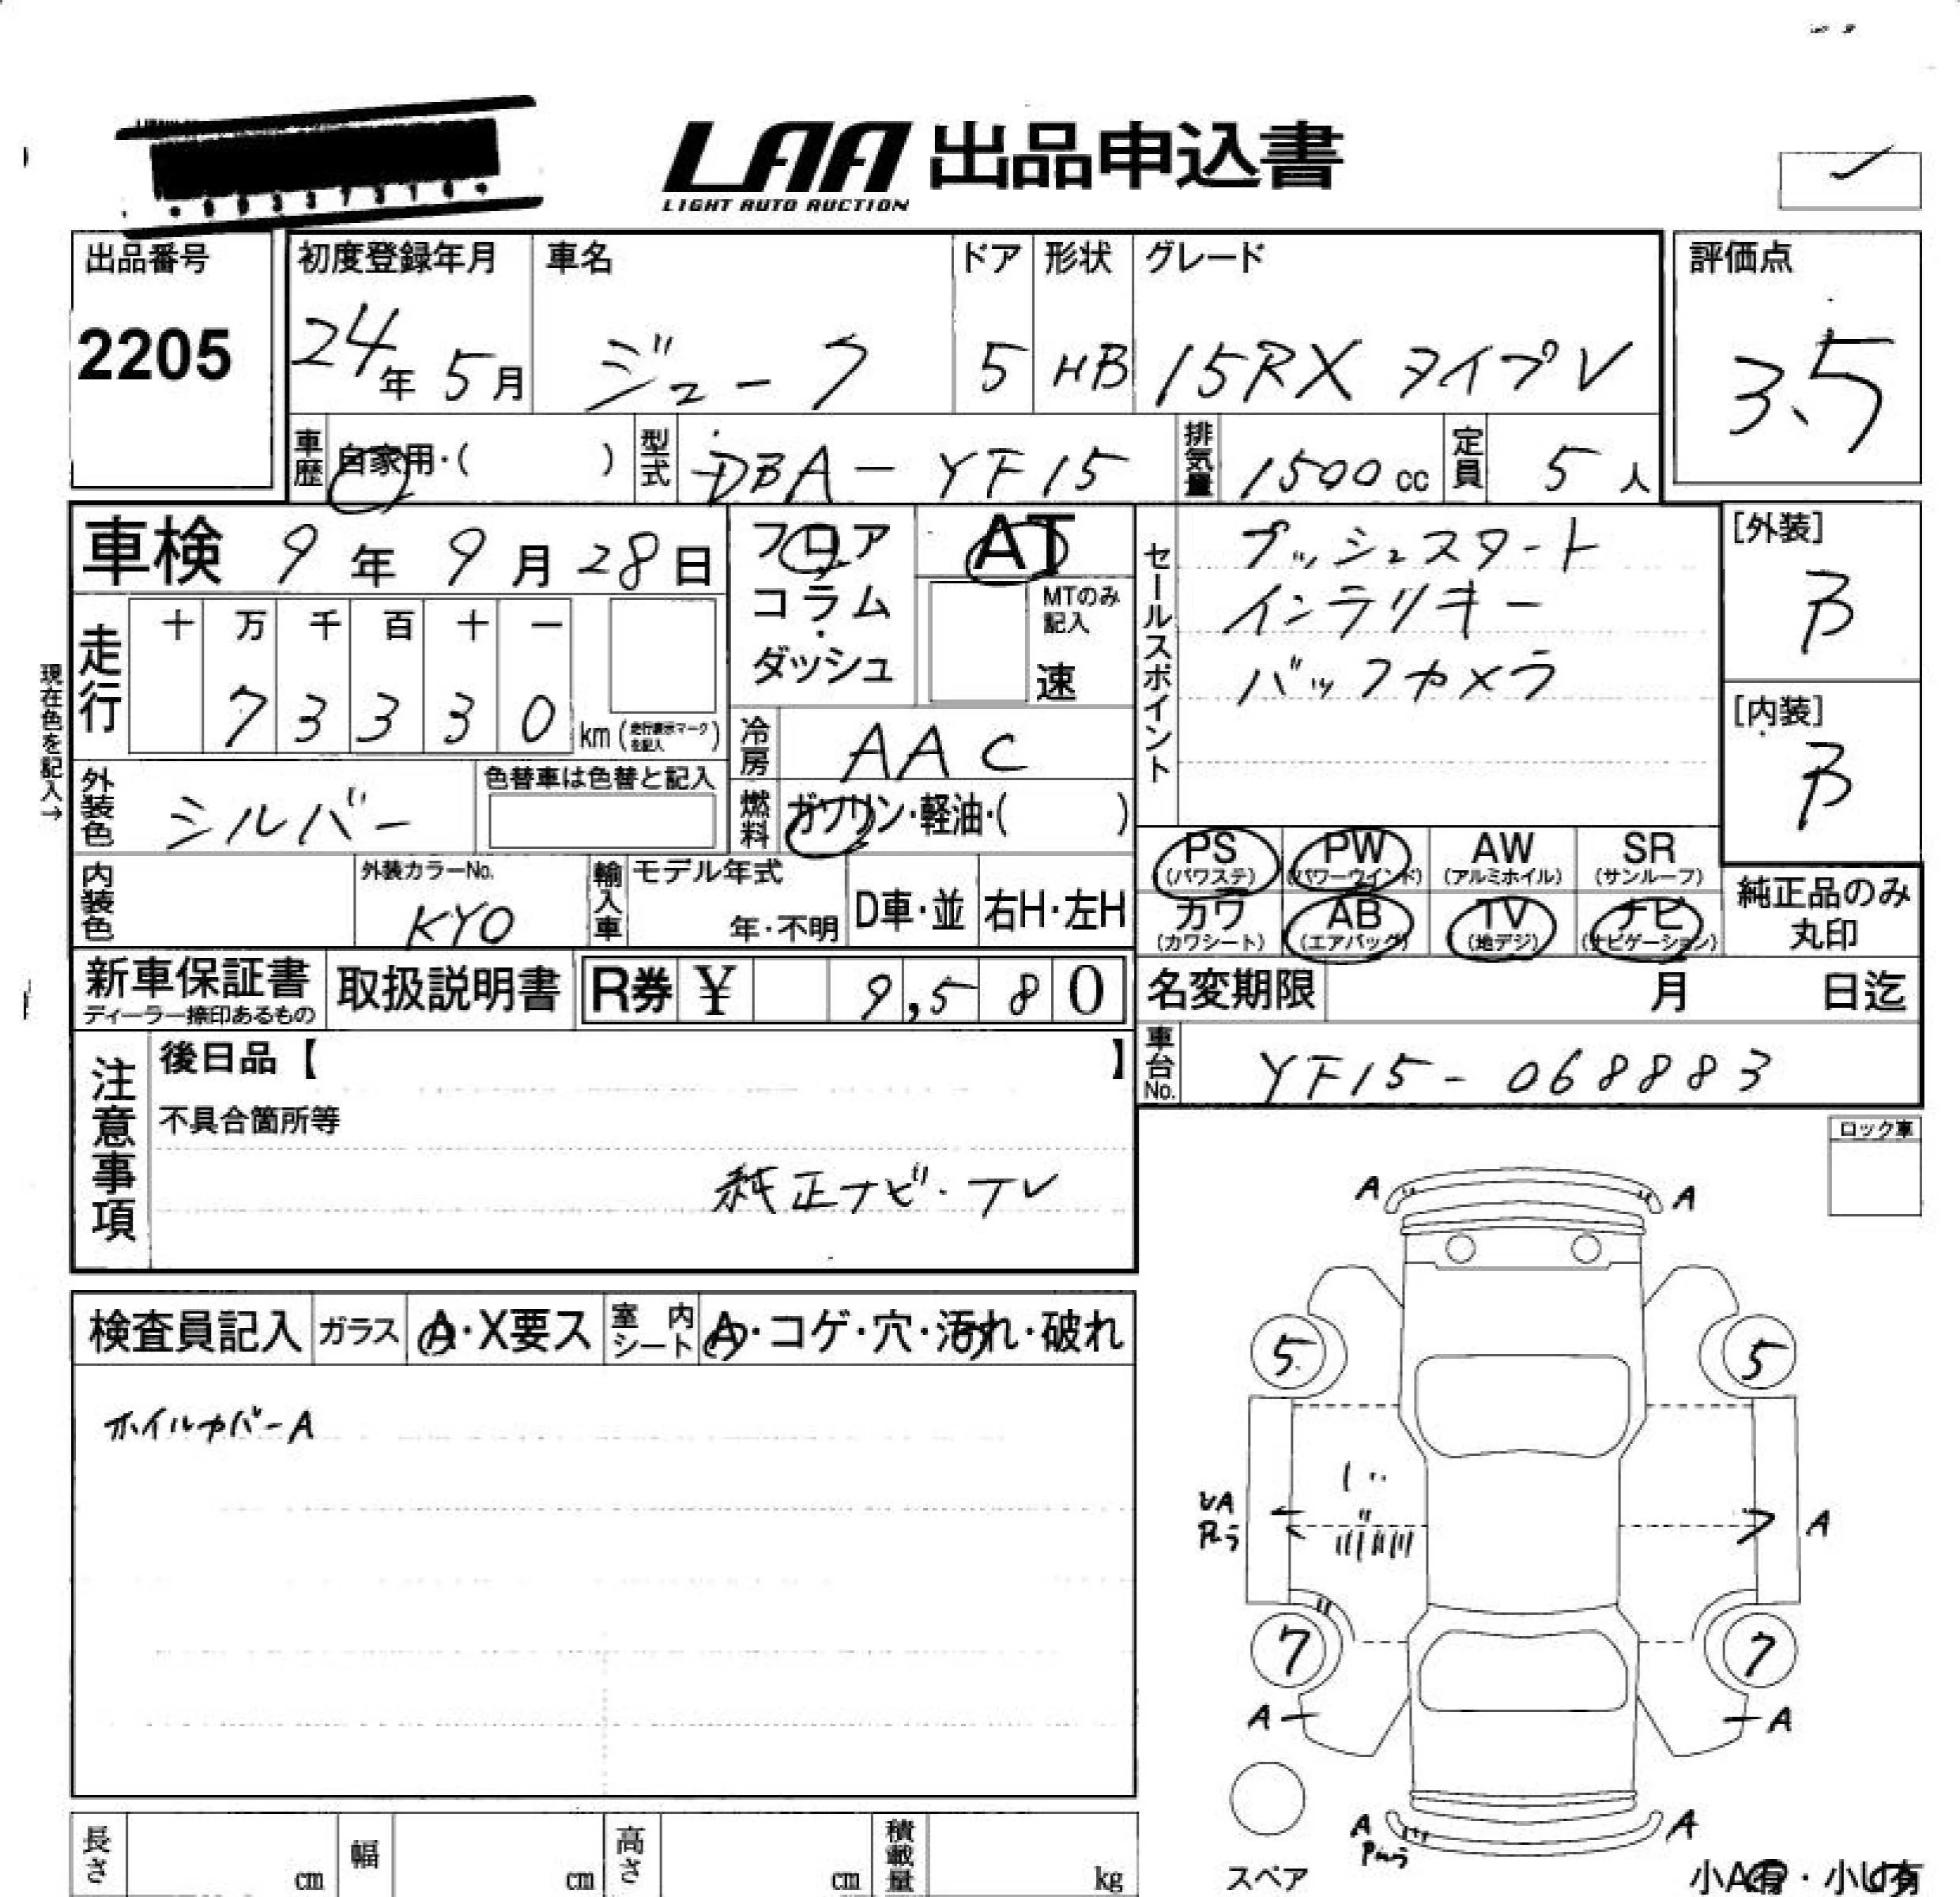 LAA 出品申込書
LIGHT AUTO AUCTION
出品番号
2205
初度登録年月 車名 ドア 形状 グレード
24年 5月 ジューク 5 HB 15RX タイプV
評価点
3.5
車歴 自家用・( ) 型式 DBA-YF15 排気量 1500cc 定員 5人
車検 9年 9月 28日
フロア・コラム・ダッシュ
AT
MTのみ記入
速
セールスポイント
プッシュスタート
インテリキー
バックカメラ
[外装]
B
[内装]
B
現在色を記入→
走行 十 万 千 百 十 一
7 3 3 3 0 km (走行表示マークを記入)
冷房 AAC
外装色 シルバー 色替車は色替と記入
燃料 ガソリン・軽油・( )
内装色 外装カラーNo. KYO
輸入車 モデル年式 年・不明 D車・並 右H・左H
PS (パワステ) PW (パワーウインド) AW (アルミホイル) SR (サンルーフ)
カワ (カワシート) AB (エアバッグ) TV (地デジ) ナビ (ナビゲーション)
純正品のみ丸印
新車保証書 ディーラー捺印あるもの
取扱説明書
R券 ¥ 9,580
名変期限 月 日迄
車台No. YF15-068883
注意事項
後日品【 】
不具合箇所等
純正ナビ・TV
ロック車
検査員記入 ガラス A・X要ス 室内シート A・コゲ・穴・汚れ・破れ
ホイルカバーA
A A
5 5
UA A
7 7
A A
A A
スペア
小A有・小U有
長さ cm 幅 cm 高さ cm 積載量 kg